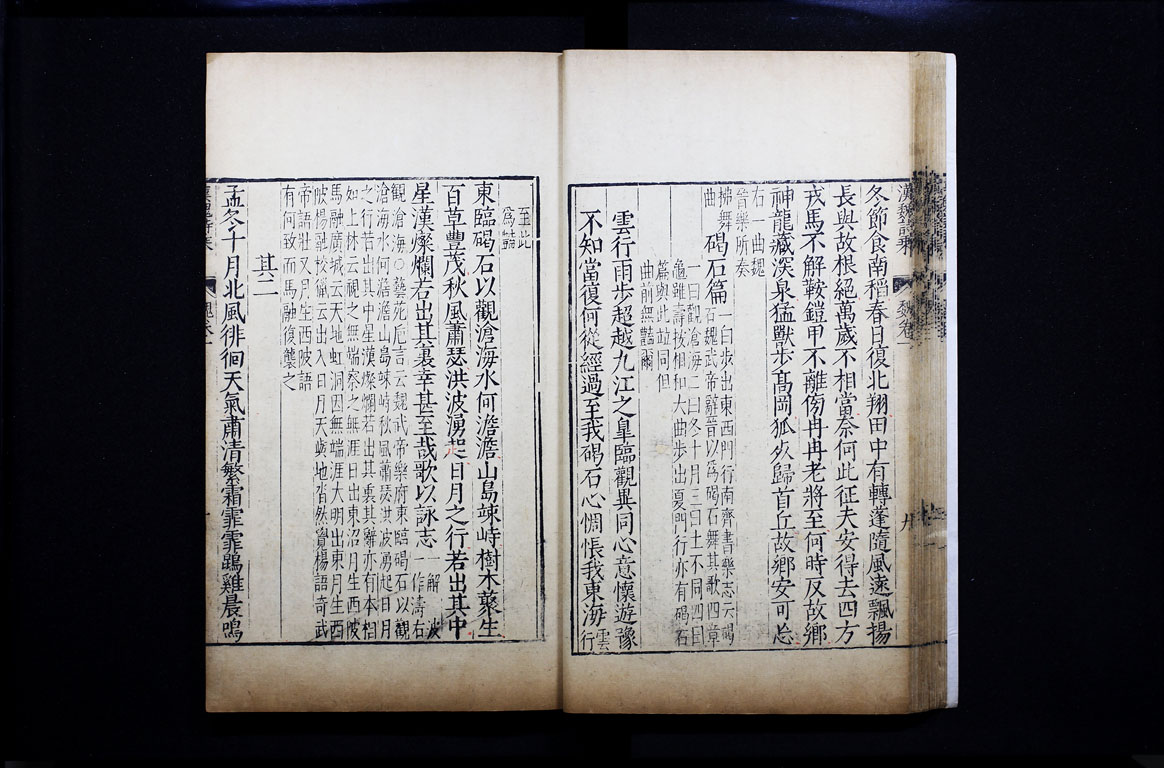 冬節食南稻春日復北翔田中有轉蓬隨風遠飄揚
長與故根絕萬歲不相當奈何此征夫安得去四方
戎馬不解鞍鎧甲不離傍冉冉老將至何時反故鄉
神龍藏深泉猛獸步高岡狐死歸首丘故鄉安可忘
右一曲魏
晉樂所奏
拂舞
曲
碣石篇
一曰步出東西門行南齊書樂志云碣
石魏武帝辭晉以為碣石舞其歌四章
一曰觀滄海二曰冬十月三曰土不同四曰
龜雖壽按相和大曲步出夏門行亦有碣石
篇與此竝同但
曲前無豔爾
雲行雨步超越九江之臯臨觀異同心意懷遊豫
不知當復何從經過至我碣石心惆悵我東海
雲行
至此
為豔
東臨碣石以觀滄海水何澹澹山島竦峙樹木藂生
百草豐茂秋風蕭瑟洪波湧起日月之行若出其中
星漢燦爛若出其裏幸甚至哉歌以詠志
一解 波
一作濤右
觀滄海○藝苑卮言云魏武帝樂府東臨碣石以觀
滄海水何澹澹山島竦峙秋風蕭瑟洪波湧起日月
之行若出其中星漢燦爛若出其裏其辭亦有本相
如上林云視之無端察之無涯日出東沼月生西陂
馬融廣成云天地虹洞因無端涯大明出東月生西
陂楊雄校獵云出入日月天與地沓然覺楊語奇武
帝語壯又月生西陂語
有何致而馬融復襲之
其二
孟冬十月北風徘徊天氣肅清繁霜霏霏鵾雞晨鳴